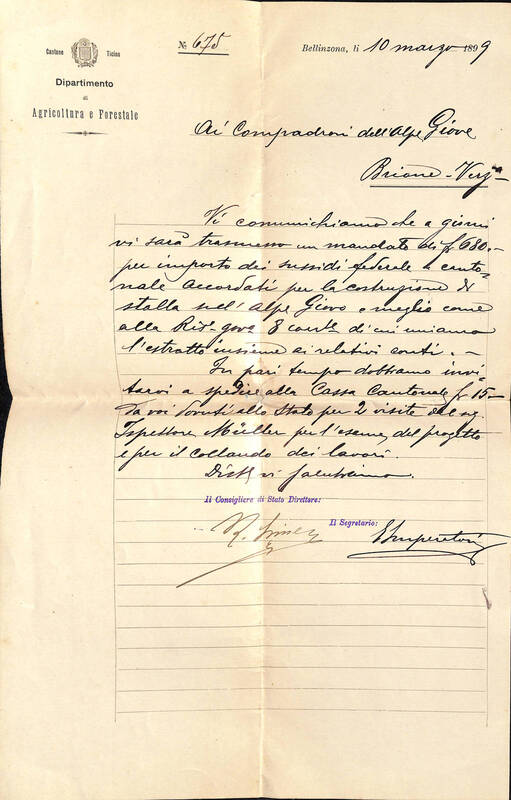 Cantone Ticino
Dipartimento
di
Agricoltura e Forestale
№ 675
Bellinzona, li 10 marzo 1899
Ai Compadroni dell'Alpe Giove
Brione-Verz
Vi comunichiamo che a giorni
vi sarà trasmesso un mandato di fr 680.-
per importo dei sussidi federale e canto-
nale accordati per la costruzione di
stalla sull'alpe Giove e meglio come
alla Ris. gova 8 corrte di cui uniamo
l'estratto insieme ai relativi conti. -
In pari tempo dobbiamo invi-
tarvi a spedire alla Cassa Cantonale fr 15-
da voi dovuti allo Stato per 2 visite del sig
Ispettore Müller per l'esame del progetto
e per il collaudo dei lavori.
Distte vi salutiamo.
Il Consigliere di Stato Direttore:
Il Segretario: